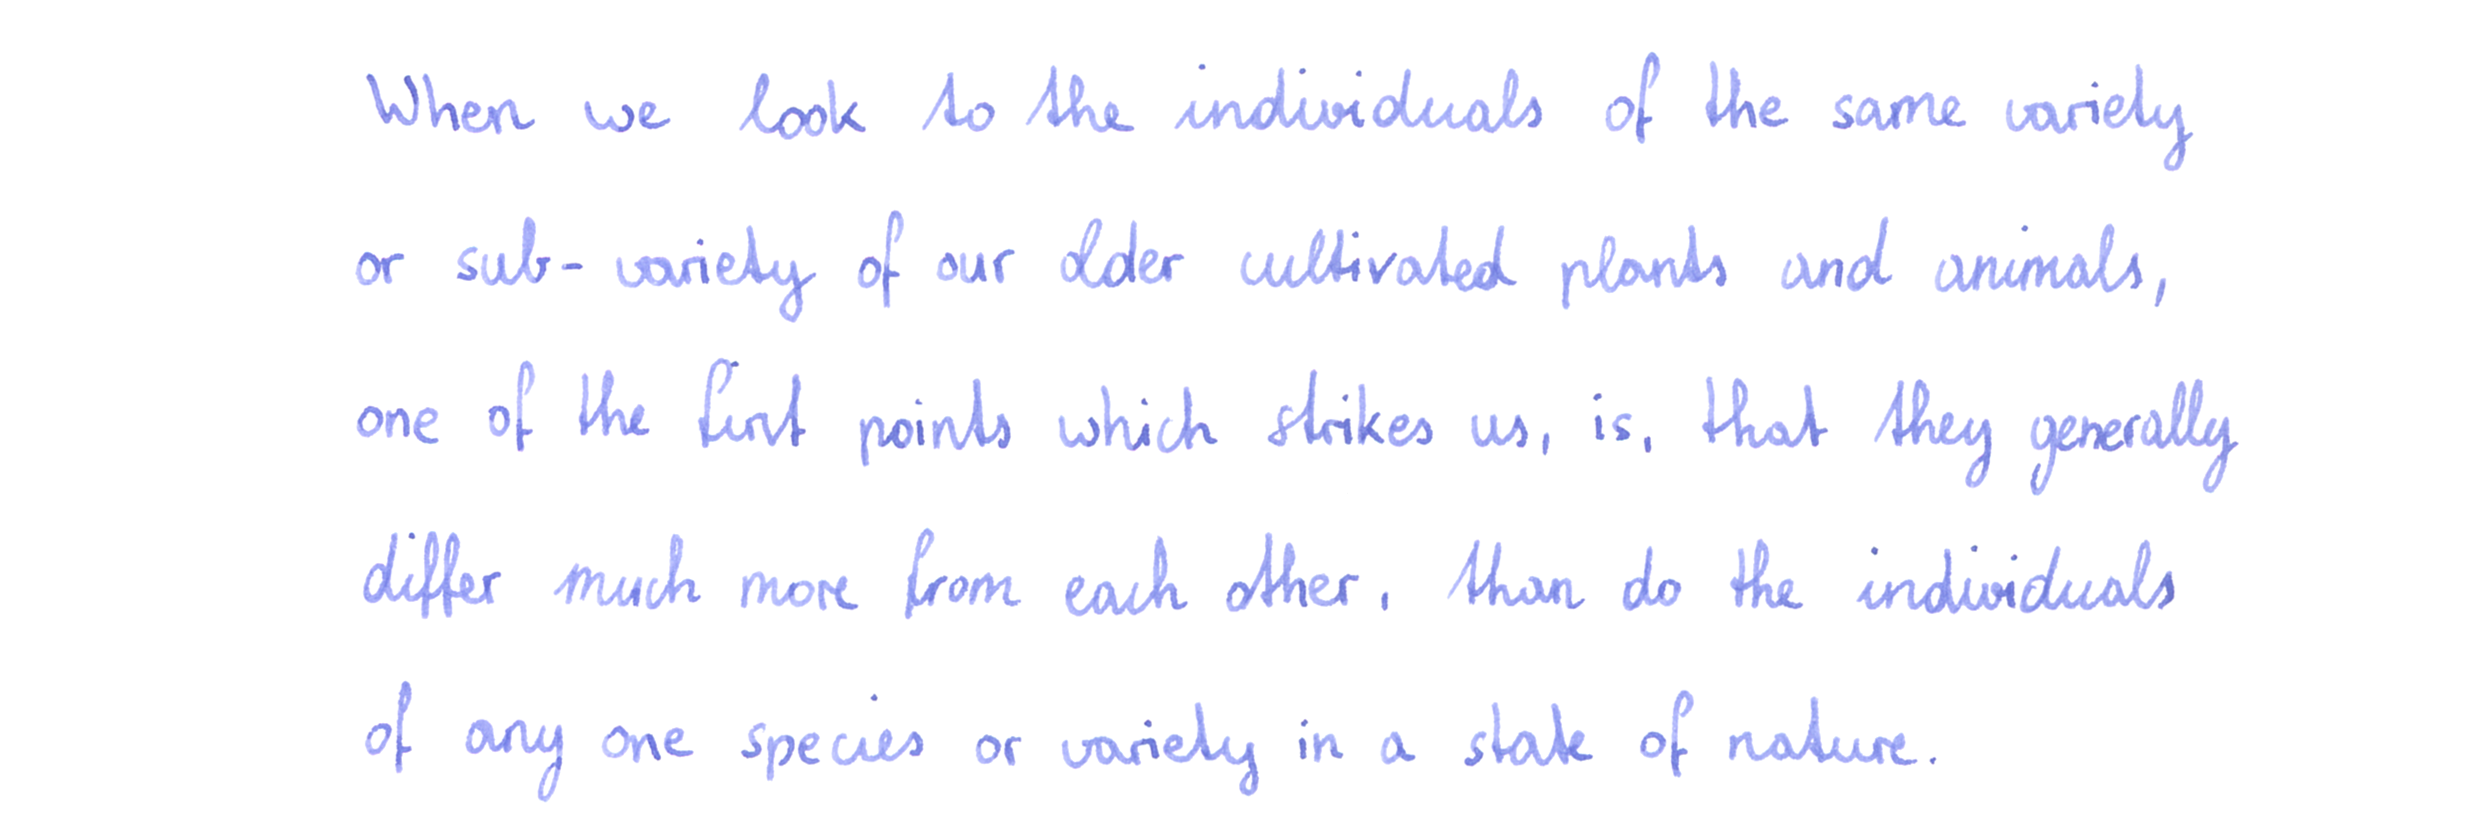 When we look to the individuals of the same variety
or sub-variety of our older cultivated plants and animals,
one of the first points which strikes us, is, that they generally
differ much more from each other, than do the individuals
of any one species or variety in a state of nature.